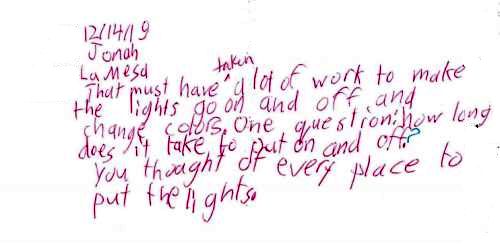 12/14/19
Jonah
La Mesa
That must have taken a lot of work to make
the lights go on and off and
change colors. One question: how long
does it take to put on and off?
You thought of every place to
put the lights.